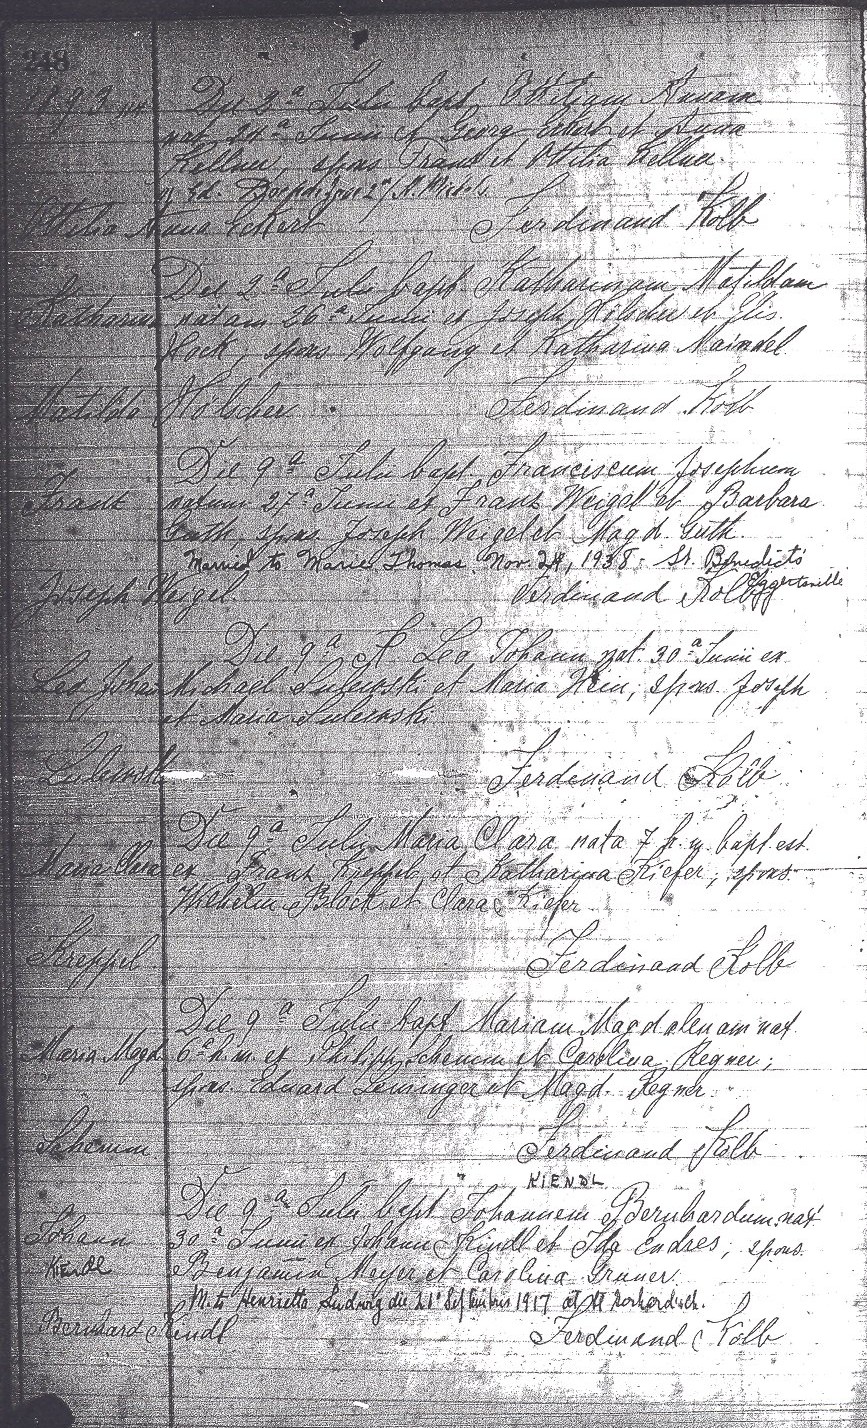 248
1893 Die 2ª Julii bapt. Ottiliam Annam
nat. 24ª Junii ex Georg Eckert et Anna
Kellner, spons Franz et Ottilia Kellner.
Ottilia Anna Eckert Ferdinand Kolb
Die 2ª Julii bapt Katharinam Matildam
Katharina natam 26ª Junii ex Joseph Hölscher et Elis.
Hock, spons Wolfgang et Katharina Maindel
Matilda Hölscher Ferdinand Kolb
Die 9ª Julii bapt. Franciscum Josephum
Frank natum 27ª Junii ex Franz Weigel et Barbara
Guth, spons Joseph Weigel et Magd. Guth.
Married to Marie Thomas. Nov. 24, 1938 - St. Benedict's
Eggertsville
Joseph Weigel. Ferdinand Kolb
Die 9ª Leo Johann nat. 30ª Junii ex
Leo Johan Michael Sulewski et Maria Hein, spons. Joseph
et Maria Sulewski
Sulewski Ferdinand Kolb
Die 9ª Julii Maria Clara nata 7 h. m. bapt est
Maria Clara ex Franz Kreppel et Katharina Kiefer, spons.
Wilhelm Block et Clara Kiefer
Kreppel Ferdinand Kolb
Die 9ª Julii bapt Mariam Magdalenam nat.
Maria Magd. 6ª h. m. ex Philipp Schemm et Carolina Regner;
spons. Eduard Leusinger et Magd. Regner.
Schemm. Ferdinand Kolb
KIENDL
Die 9ª Julii bapt Johannem Bernhardum nat
Johann 30ª Junii ex Johann Kindl et Ida Endres, spons.
Kiendl Benjamin Meyer et Carolina Gruner
M. to Henrietta Ludwig die 21ª Septembris 1917 at
Bernhard Kindl Ferdinand Kolb